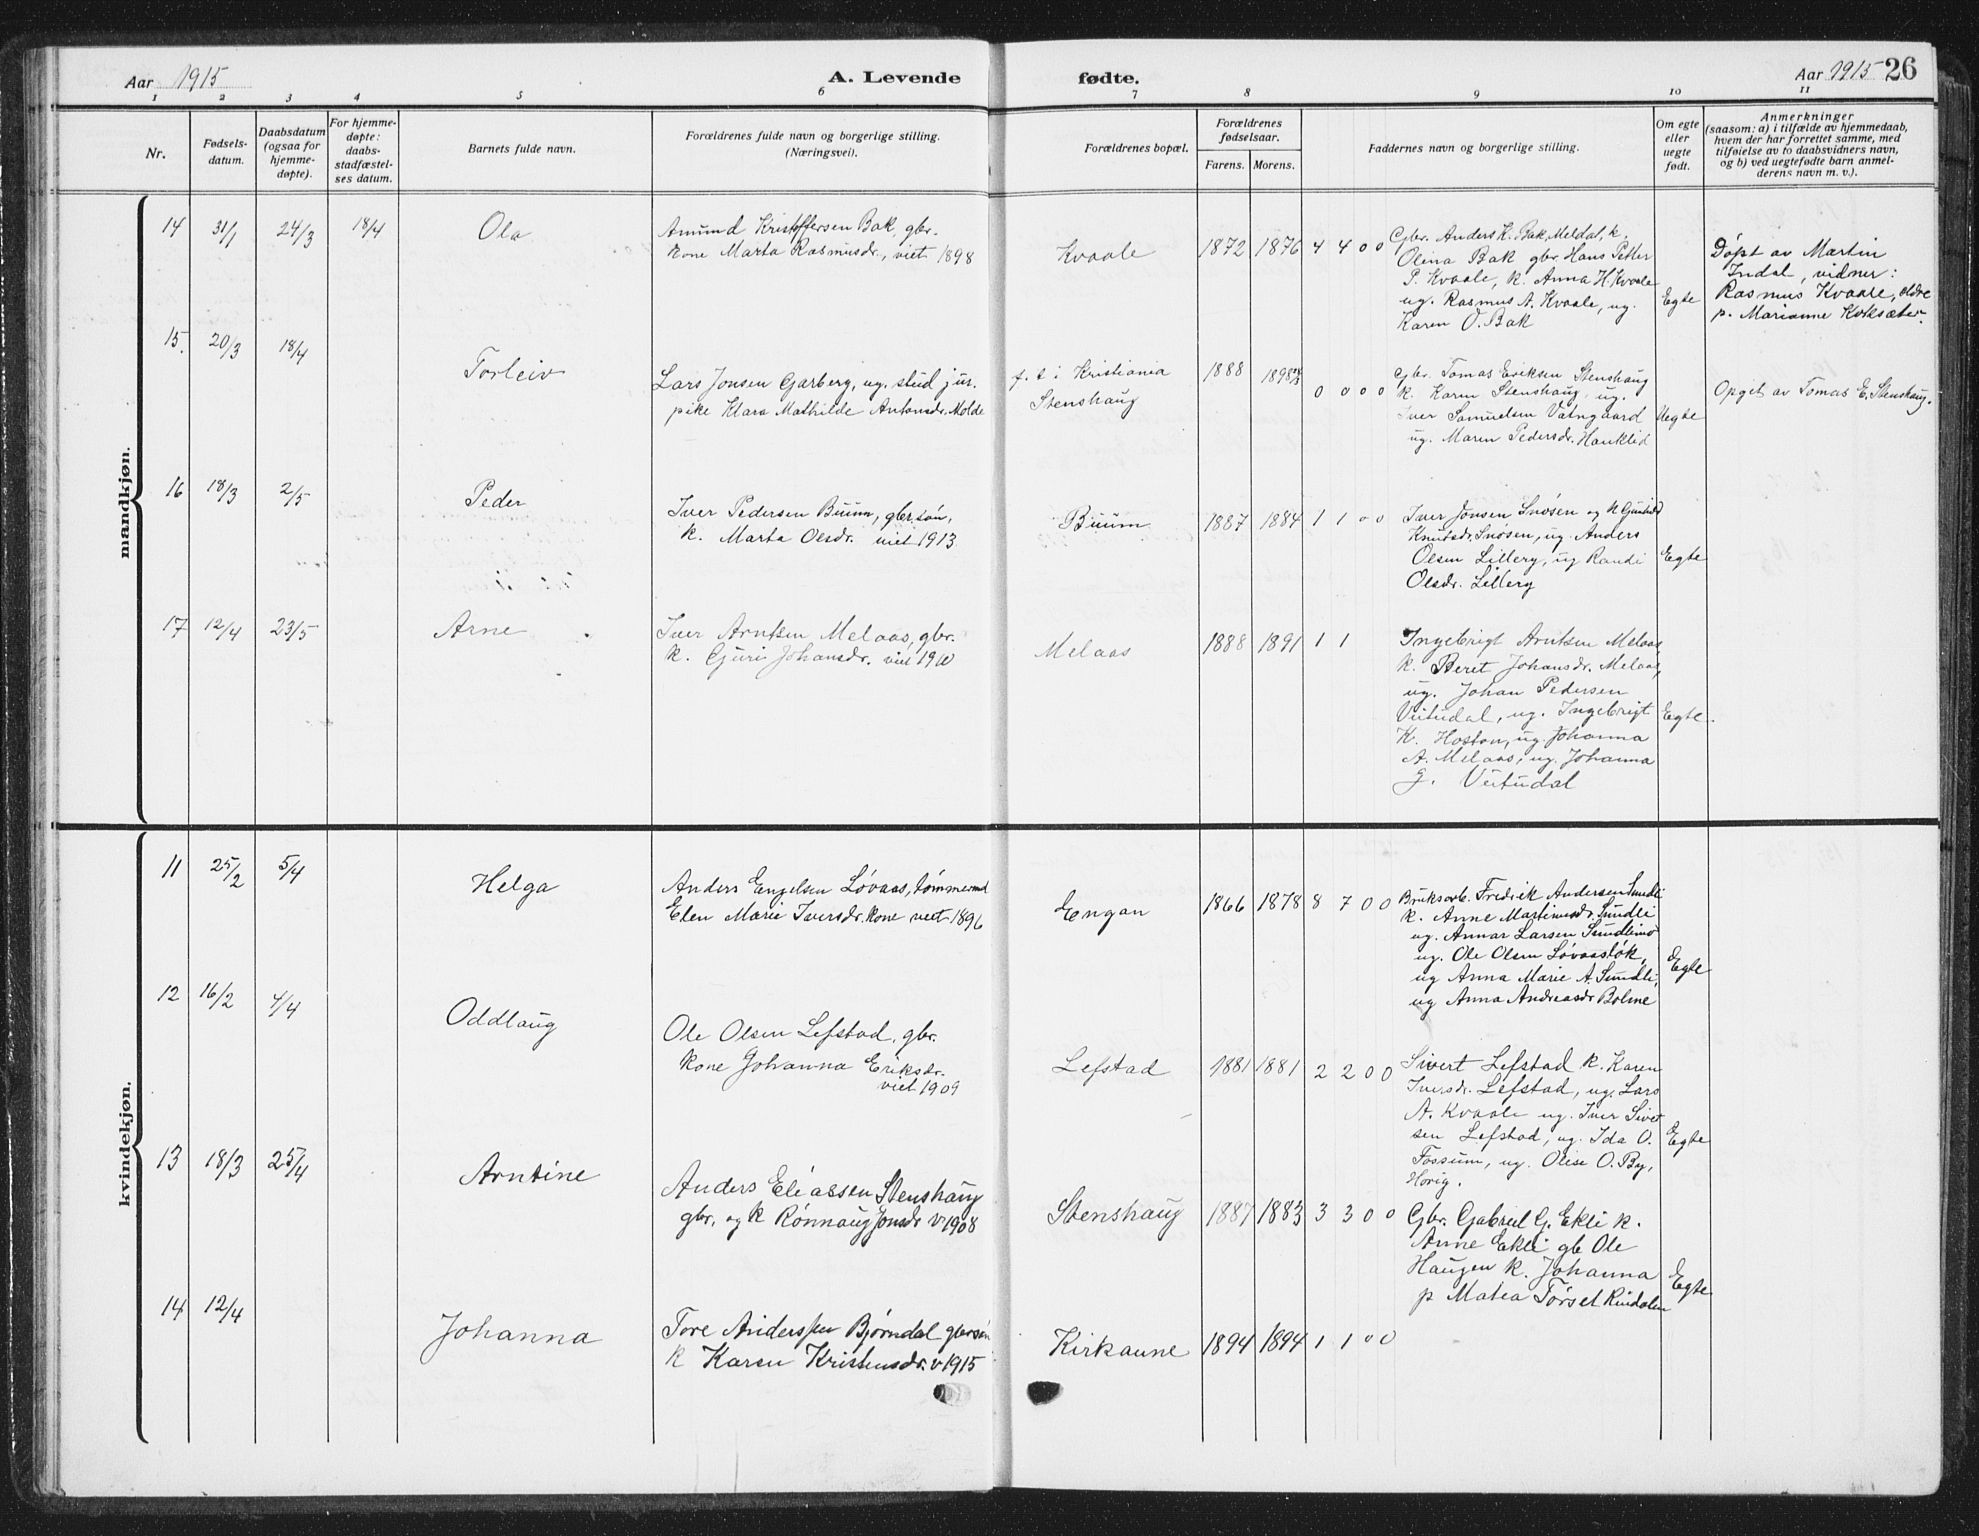 Aar 1915
A. Levende fødte.
Aar 1915 26
1 2 3 4 5 6 7 8 9 10 11
Nr.
Fødsels-
datum.
Daabsdatum
(ogsaa for
hjemme-
døpte).
For hjemme-
døpte:
daabs-
stadfæstel-
ses datum.
Barnets fulde navn.
Forældrenes fulde navn og borgerlige stilling.
(Næringsvei).
Forældrenes bopæl.
Forældrenes
fødselsaar.
Farens. Morens.
Faddernes navn og borgerlige stilling.
Om egte
eller
uegte
født.
Anmerkninger
(saasom: a) i tilfælde av hjemmedaab,
hvem der har forrettet samme, med
tilføielse av to daabsvidners navn,
og b) ved uegtefødte barn anmel-
derens navn m. v.).
mandkjøn.
14 31/1 24/3 18/4
Ola
Amund Kristoffersen Bak, gbr.
kone Marta Rasmusdr., viet 1898
Kvaale
1872 1876 4 4 0 0
Gbr. Anders K. Bak, Meldal, k.
Olina Bak gbr. Hans Petter
P. Kvaale, k. Anna H. Kvaale
ug. Rasmus A. Kvaale, ug.
Karen O. Bak
Egte
Døpt av Martin
Indal, vidner:
Rasmus Kvaale, eldre
p. Marianne
15. 20/3 18/4
Torleiv
Lars Jonsen Garberg, ug. stud jur.
pike Klara Mathilde Antonsdr. Molde
f. t i Kristiania
Stenshaug
1888 1898 0 0 0 0
gbr. Tomas Eriksen Stenshaug
k. Karen Stenshaug, ug.
Iver Samuelsen Vatngaard
ug. Maren Pedersdr. Hanklid
Uegte
Opgit av Tomas E. Stenshaug.
16 18/3 2/5
Peder
Iver Pedersen Buum, gbr.søn,
k. Marta Olsdr. viet 1913
Buum
1887 1884 1 1 0 0
Iver Jonsen Snøsen og k Gunhild
Knutsdr. Snøsen, ug. Anders
Olsen Lillery, ug Randi
Olsdr. Lillery
Egte
17 12/4 23/5
Arne
Iver Arntsen Melaas, gbr.
k. Guri Johansdr. viet 1910
Melaas
1888 1891 1 1
Ingebrigt Arntsen Melaas
k. Beret Johansdr. Melaas,
ug. Johan Pedersen
Veitudal, ug. Ingebrigt
K. Hoston, ug. Johanna
A. Melaas, ug. Johanna
G. Veitudal
Egte.
kvindekjøn.
11 25/2 5/4
Helga
Anders Engelsen Løvaas, tømmermd
Elen Marie Iversdr. kone viet 1896
Engan
1866 1878 8 7 0 0
Bruksarb. Fredrik Andersen Sundli
k. Anne Martinusdr. Sundli
ug. Annar Larsen Sundlimo
ug. Ole Olsen Løvaasløk,
ug Anna Marie A. Sundli,
ug Anna Andreasdr Bolme
Egte
12 16/2 4/4
Oddlaug
Ole Olsen Lefstad, gbr.
kone Johanna Eriksdr.
viet 1909
Lefstad
1881 1881 2 2 0 0
Sivert Lefstad k. Karen
Iversdr. Lefstad, ug. Lars
A. Kvaale ug. Iver Sivert
sen Lefstad, ug. Ida O.
Fossum, ug. Olise O. By,
Hørig.
Egte
13 18/3 25/4
Arntine
Anders Eliassen Stenshaug
gbr. og k Rønnaug Jonsdr v 1908
Stenshaug
1887 1883 3 3 0 0
Gbr. Gabriel G. Ekli k.
Anne Ekli gb Ole
Haugen k. Johanna
p Matea Tørset Rindalen
Egte
14 12/4
Johanna
Tore Anderssen Bjørndal gbrsøn
k Karen Kristensdr. v 1915
Kirkaune
1894 1894 1 1 0 0